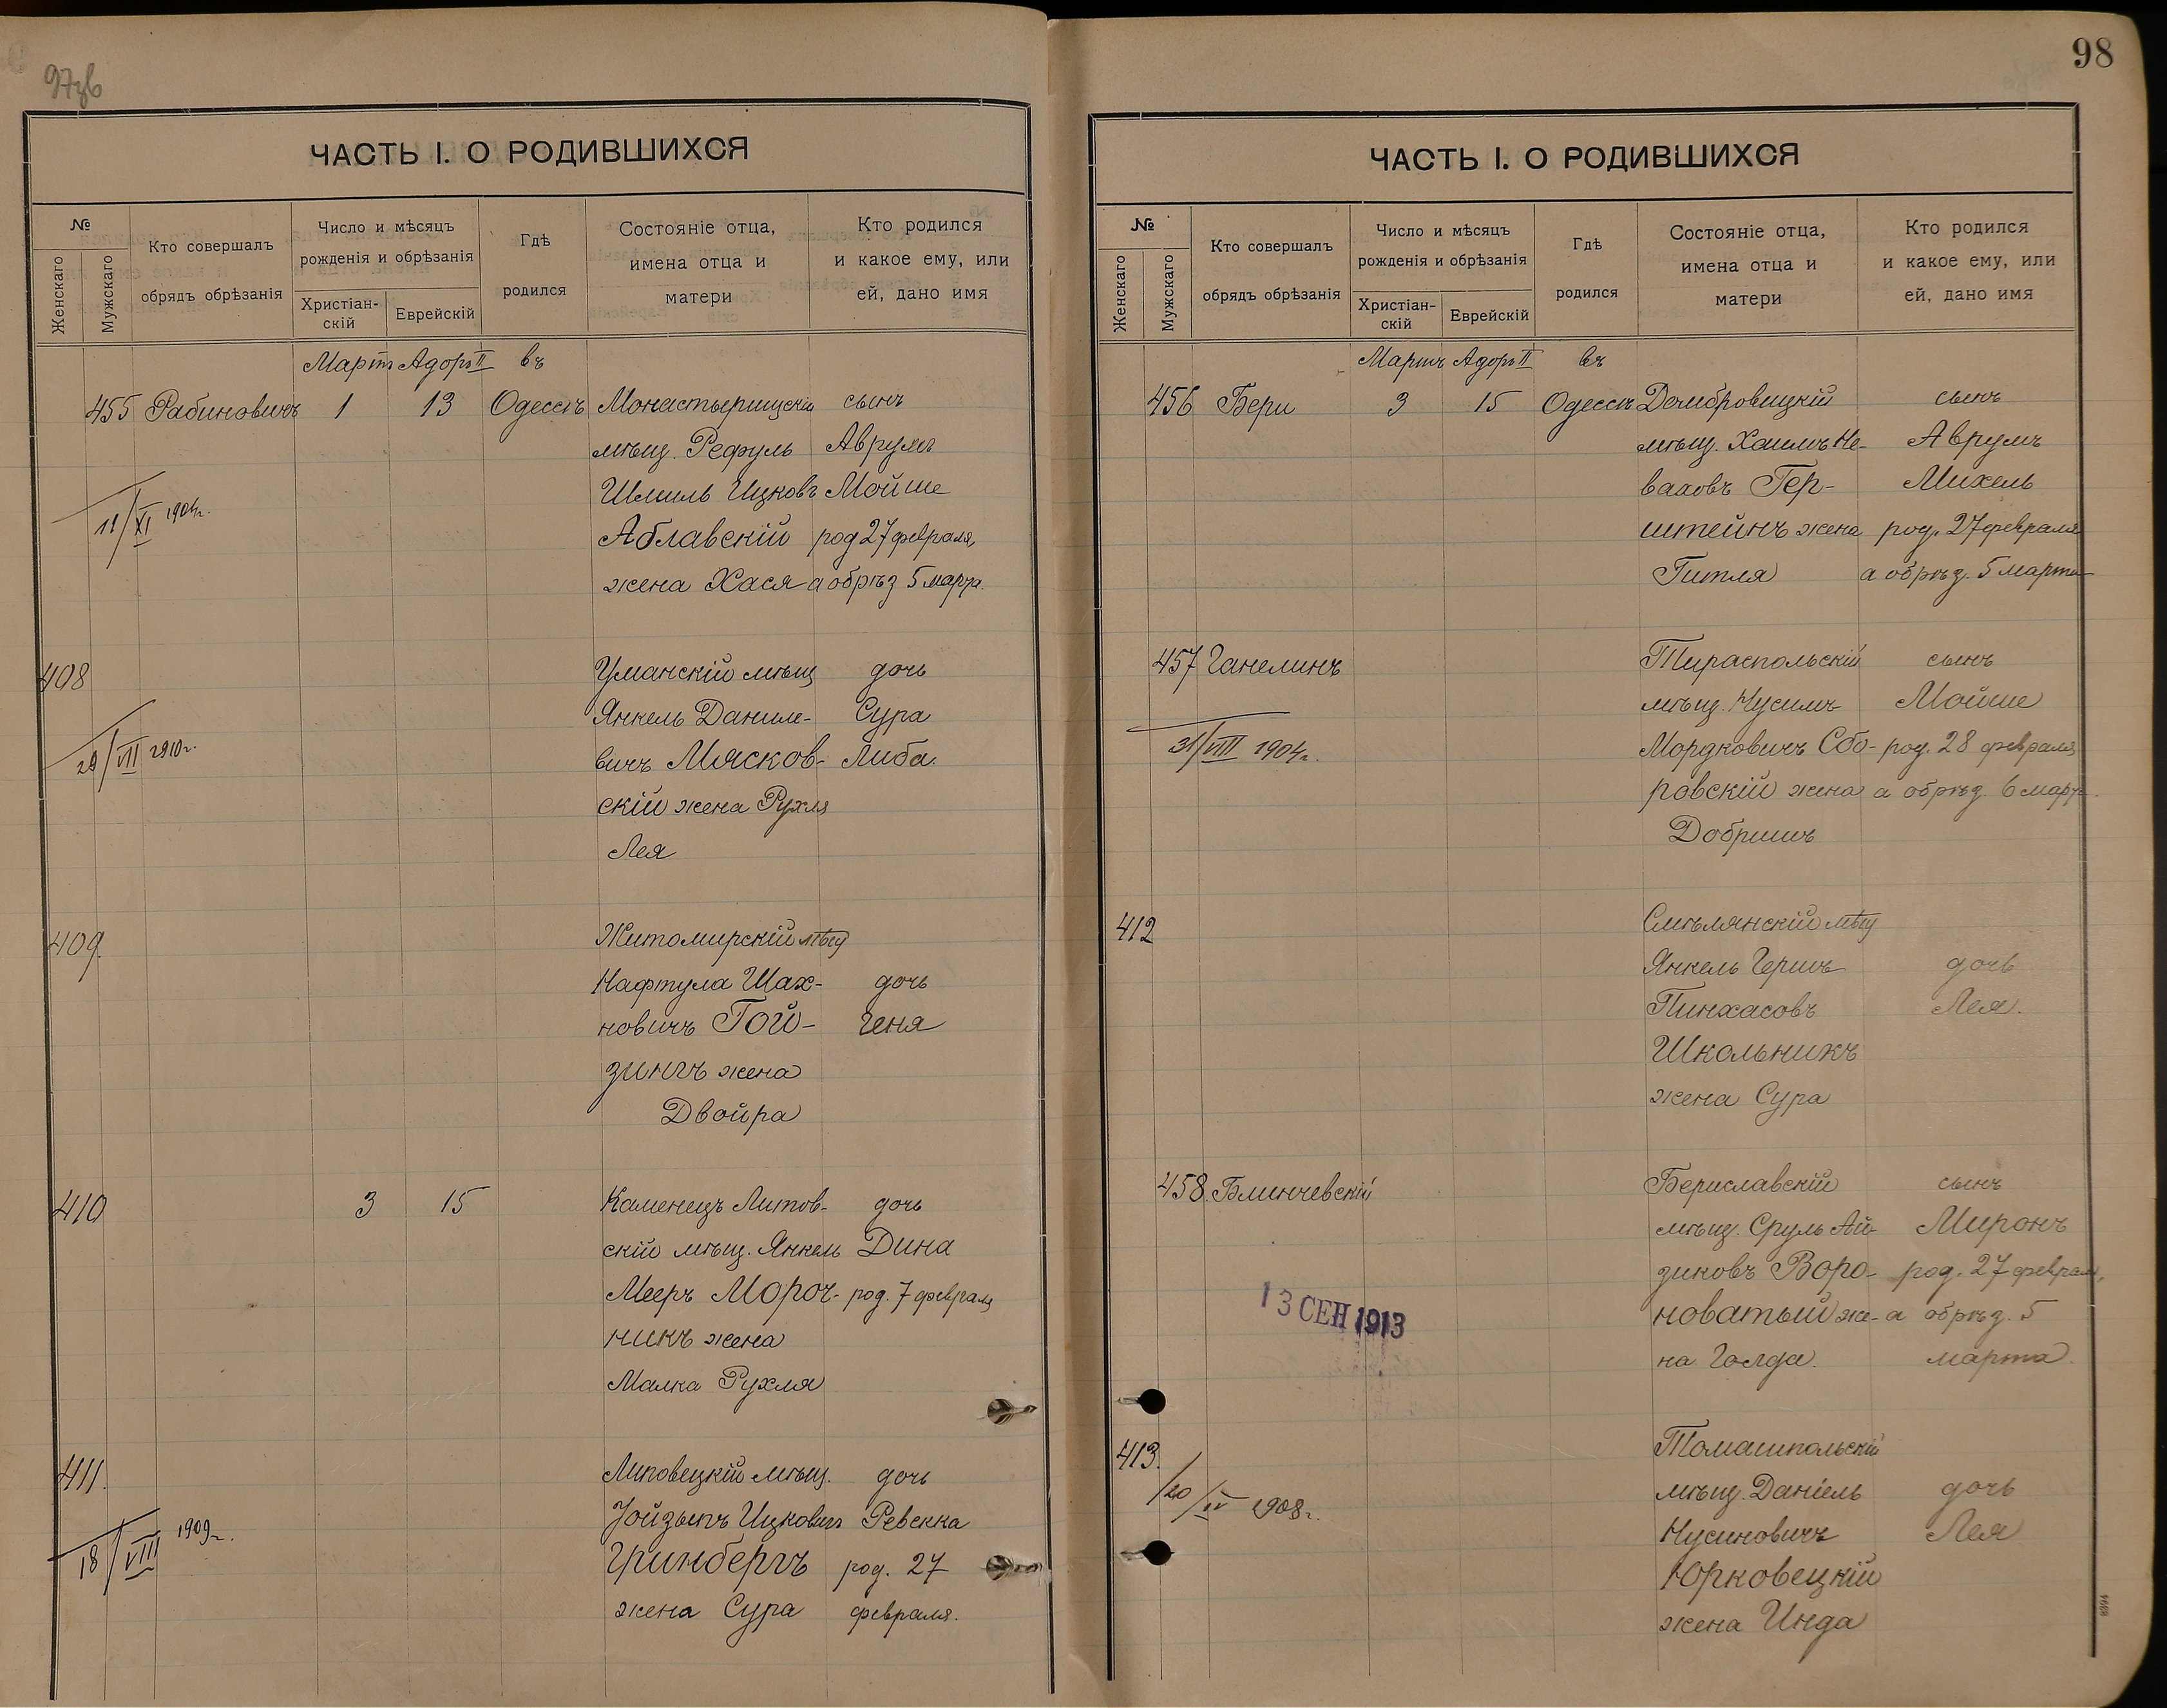 97зв
ЧАСТЬ I. О РОДИВШИХСЯ
№
Женскаго
Мужскаго
Кто совершалъ
обрядъ обрѣзанія
Число и мѣсяцъ
рожденія и обрѣзанія
Христіан-
скій
Еврейскій
Гдѣ
родился
Состояніе отца,
имена отца и
матери
Кто родился
и какое ему, или
ей, дано имя
Мартъ Адоръ II въ
455 Рабиновичъ 1 13 Одессѣ Монастырищскій сынъ
мѣщ. Рефуль Аврумъ
Шмиль Ицковъ Мойше
11/XI 1904г. Аблавскій род 27 февраля,
жена Хася а обрѣз 5 марта.
408 Уманскій мѣщ дочь
Янкель Даниле- Сура
29/VII 1910г. вичъ Мясков- Либа.
скій жена Рухля
Лея
409. Житомирскій мѣщ
Нафтула Шах- дочь
новичъ Гой- Геня
зингъ жена
Двойра
410 3 15 Каменецъ Литов- дочь
скій мѣщ. Янкель Дина
Мееръ Мороч- род. 7 февраля
никъ жена
Малка Рухля
411. Липовецкій мѣщ. дочь
Іойзыпъ Ицковичъ Ревекка
18/VIII 1909г. Гринбергъ род. 27
жена Сура февраля.
98
ЧАСТЬ I. О РОДИВШИХСЯ
№
Женскаго
Мужскаго
Кто совершалъ
обрядъ обрѣзанія
Число и мѣсяцъ
рожденія и обрѣзанія
Христіан-
скій
Еврейскій
Гдѣ
родился
Состояніе отца,
имена отца и
матери
Кто родился
и какое ему, или
ей, дано имя
Мартъ Адоръ II въ
456 Бери 3 15 Одессѣ Домбровицкій сынъ
мѣщ. Хаимъ Не- Аврумъ
ваховъ Гер- Михель
штейнъ жена род. 27 февраля
Гитля а обрѣз. 5 марта
457 Ганелинъ Тираспольскій сынъ
мѣщ. Нусимъ Мойше
31/VIII 1904г. Мордковичъ Сбо- род. 28 февраля,
ровскій жена а обрѣз. 6 март.
Добришъ
412 Смѣлянскій мѣщ
Янкель Гершъ дочь
Пинхасовъ Лея.
Школьникъ
жена Сура
458. Блинчевскій Бериславскій сынъ
мѣщ. Сруль Ай- Миронъ
зиковъ Воро- род. 27 феврал,
13 СЕН 1913 новатый же- а обрѣз. 5
на Голда. марта.
413. Томашпольскій
20/IV 1908г. мѣщ. Даніель дочь
Нусиновичъ Лея
Юрковецкій
жена Инда